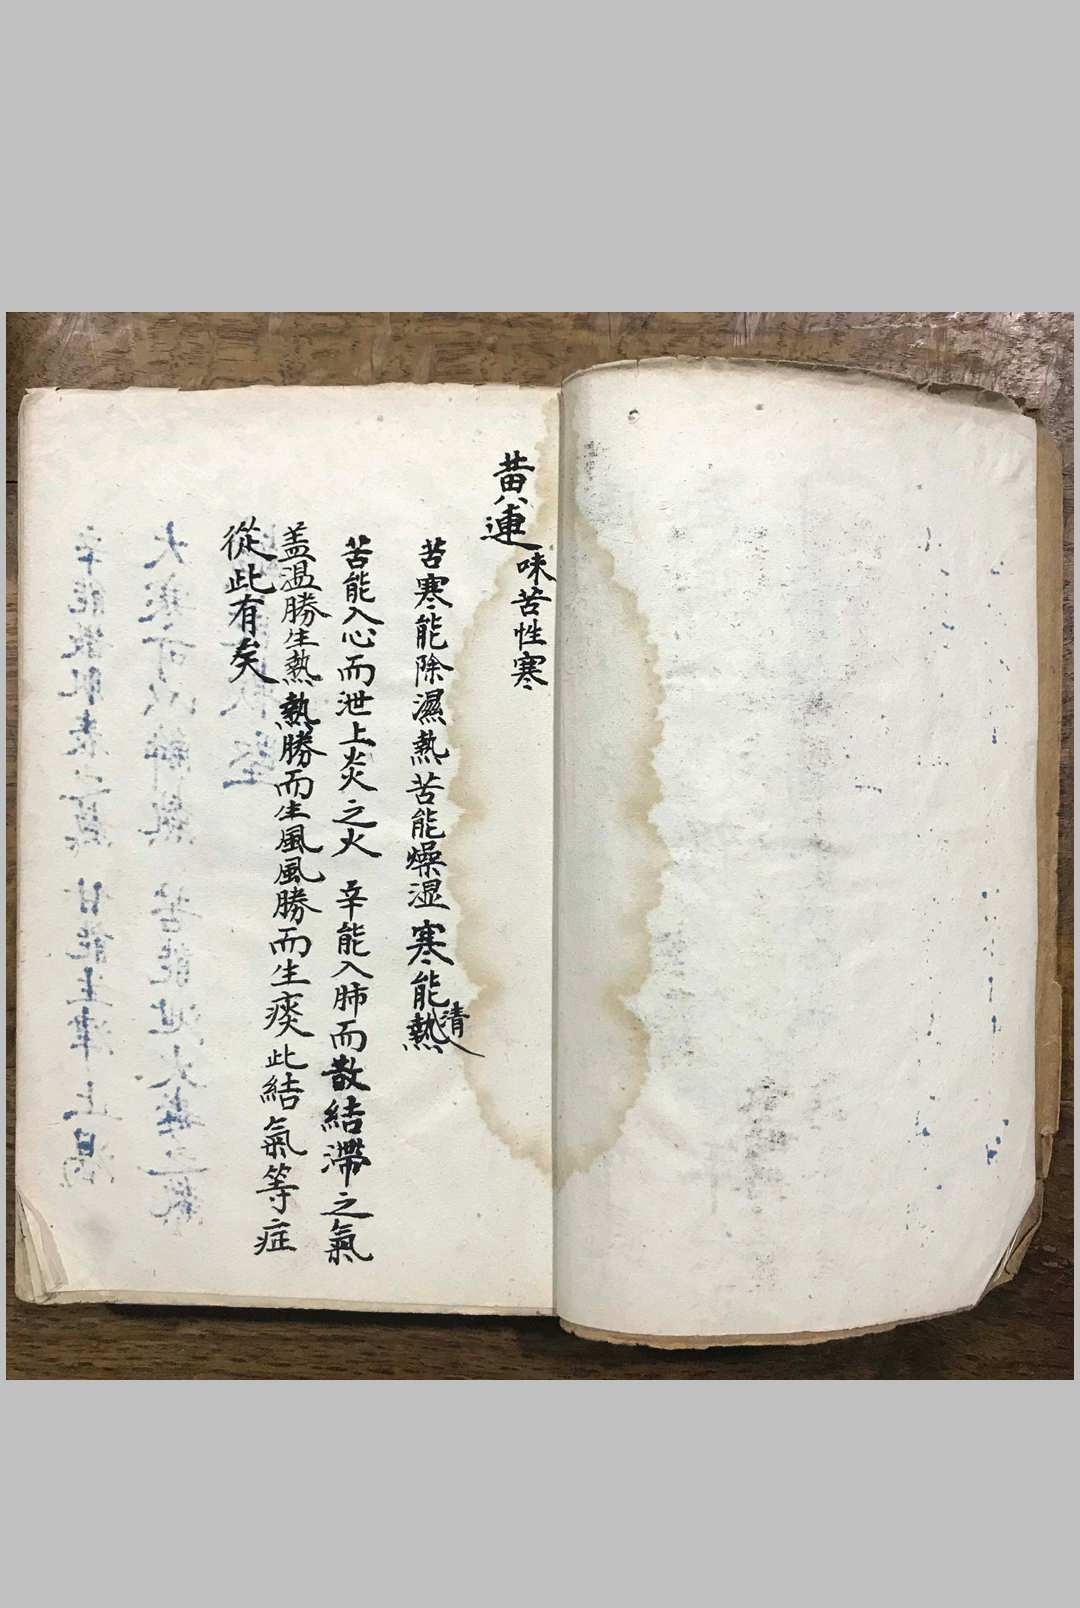 黄連 味苦性寒
苦寒能除濕熱苦能燥湿寒能清熱
苦能入心而泄上炎之火 辛能入肺而散結滯之氣
盖温勝生熱熱勝而生風風勝而生痰此結氣等症
從此有矣